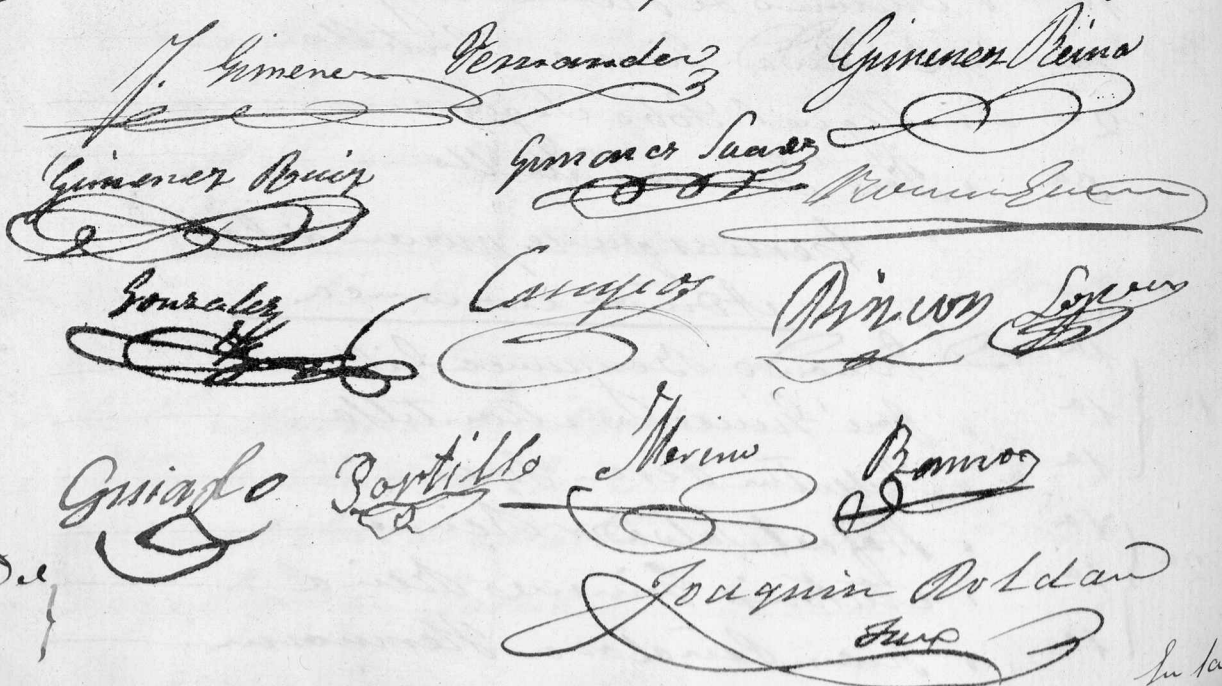 J. Gimenez Fernandez Gimenez Reina
Gimenez Ruiz Gimenez Suarez
Gonzalez Campos Rincon Lopez
Guiado Portillo Merino Ramos
Joaquin Roldan